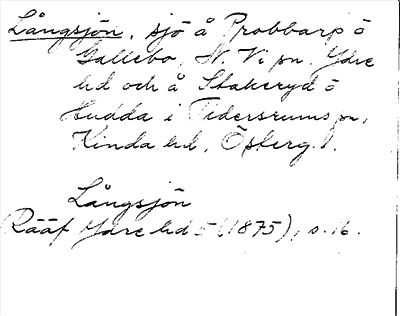 Långsjön, sjö å Probbarp o
Gallebo, N. Vi sn. Ydre
hd och å Stakeryd o
Hudda i Tidersrums sn,
Kinda hd, Östergl.
Långsjön
(Rääf Ydre hd 5 (1875), s. 16.